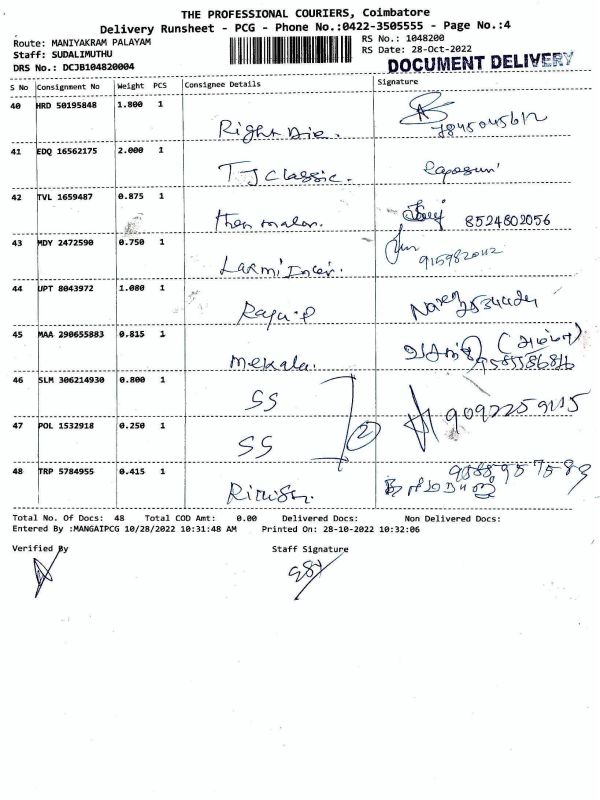 THE PROFESSIONAL COURIERS, Coimbatore
Delivery Runsheet - PCG - Phone No.:0422-3505555 - Page No.:4
Route: MANIYAKRAM PALAYAM RS No.: 1048200
Staff: SUDALIMUTHU RS Date: 28-Oct-2022
DRS No.: DCJB104820004 DOCUMENT DELIVERY
S No Consignment No Weight PCS Consignee Details Signature
40 HRD 50195848 1.800 1
Right Die.
41 EDQ 16562175 2.000 1
TJ Classic.
42 TVL 1659487 0.875 1
8524802056
43 MDY 2472590 0.750 1
Laxmi
44 UPT 8043972 1.080 1
Raju.P
45 MAA 290655883 0.815 1
mekala.
46 SLM 306214930 0.800 1
SS
47 POL 1532918 0.250 1
SS 2
48 TRP 5784955 0.415 1
Total No. Of Docs: 48 Total COD Amt: 0.00 Delivered Docs: Non Delivered Docs:
Entered By :MANGAIPCG 10/28/2022 10:31:48 AM Printed On: 28-10-2022 10:32:06
Verified By Staff Signature